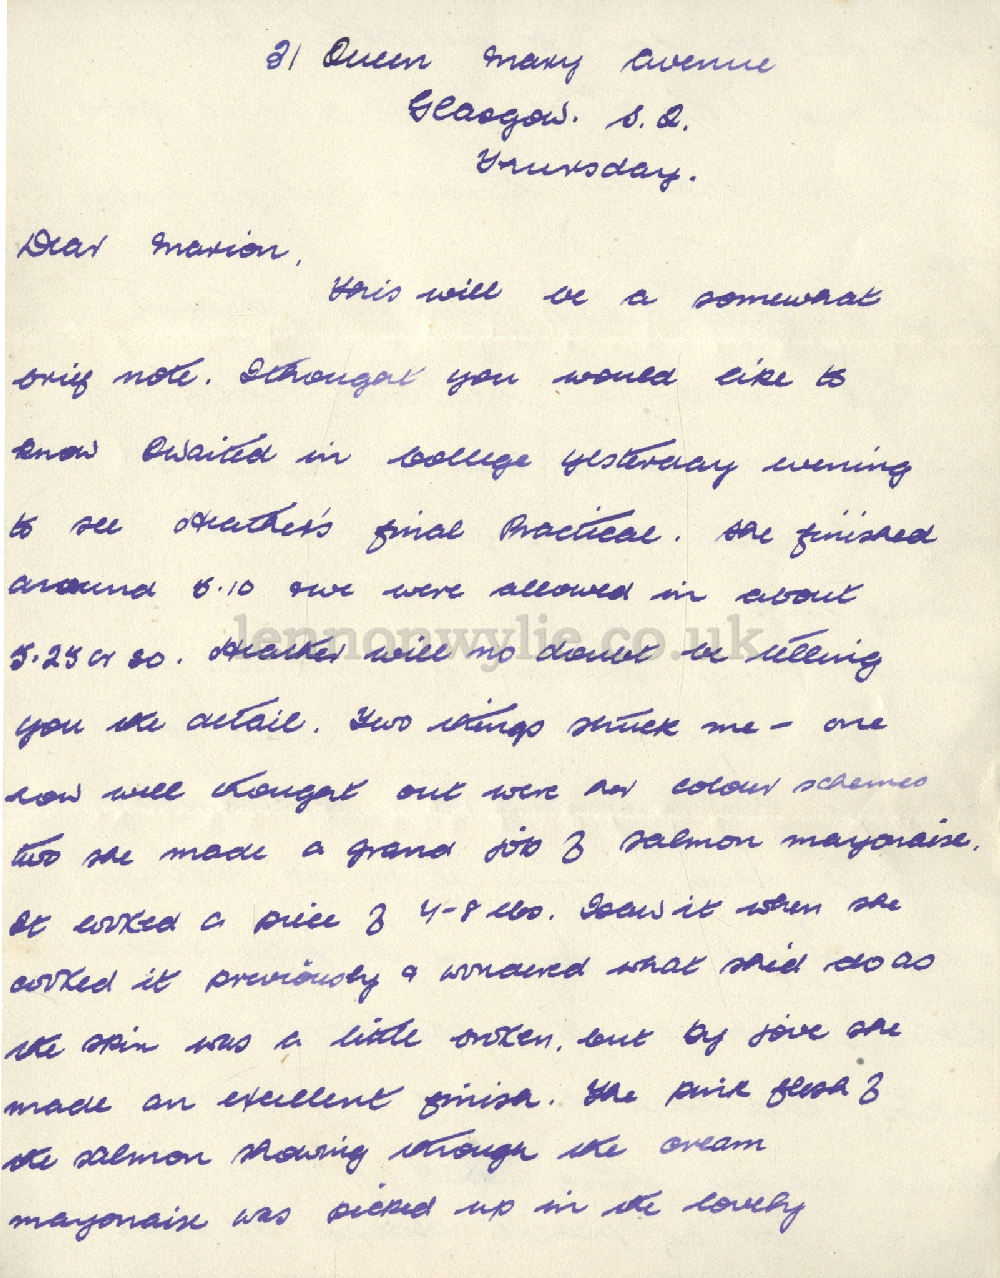 21 Queen Mary Avenue
Glasgow. S. 2.
Thursday.
Dear Marion,
This will be a somewhat
brief note. I thought you would like to
know I waited in College yesterday evening
to see Heather's final Practical. She finished
around 5.10 & we were allowed in about
5.25 or so. Heather will no doubt be telling
you the detail. Two things struck me - one
how well thought out were her colour schemes
two she made a grand job of salmon mayonaise.
It looked a piece of 4-8 lbs. I saw it when she
cooked it previously & wondered what she'd do as
the skin was a little broken, but by jove she
made an excellent finish. The pink flesh of
the salmon showing through the cream
mayonaise was picked up in the lovely
lennonwylie.co.uk